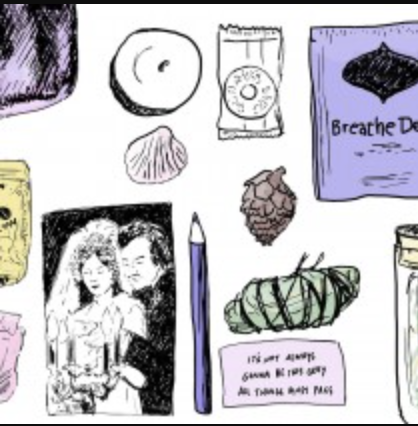 Breathe De
IT'S NOT ALWAYS
GONNA BE THIS GREY
ALL THINGS MUST PASS